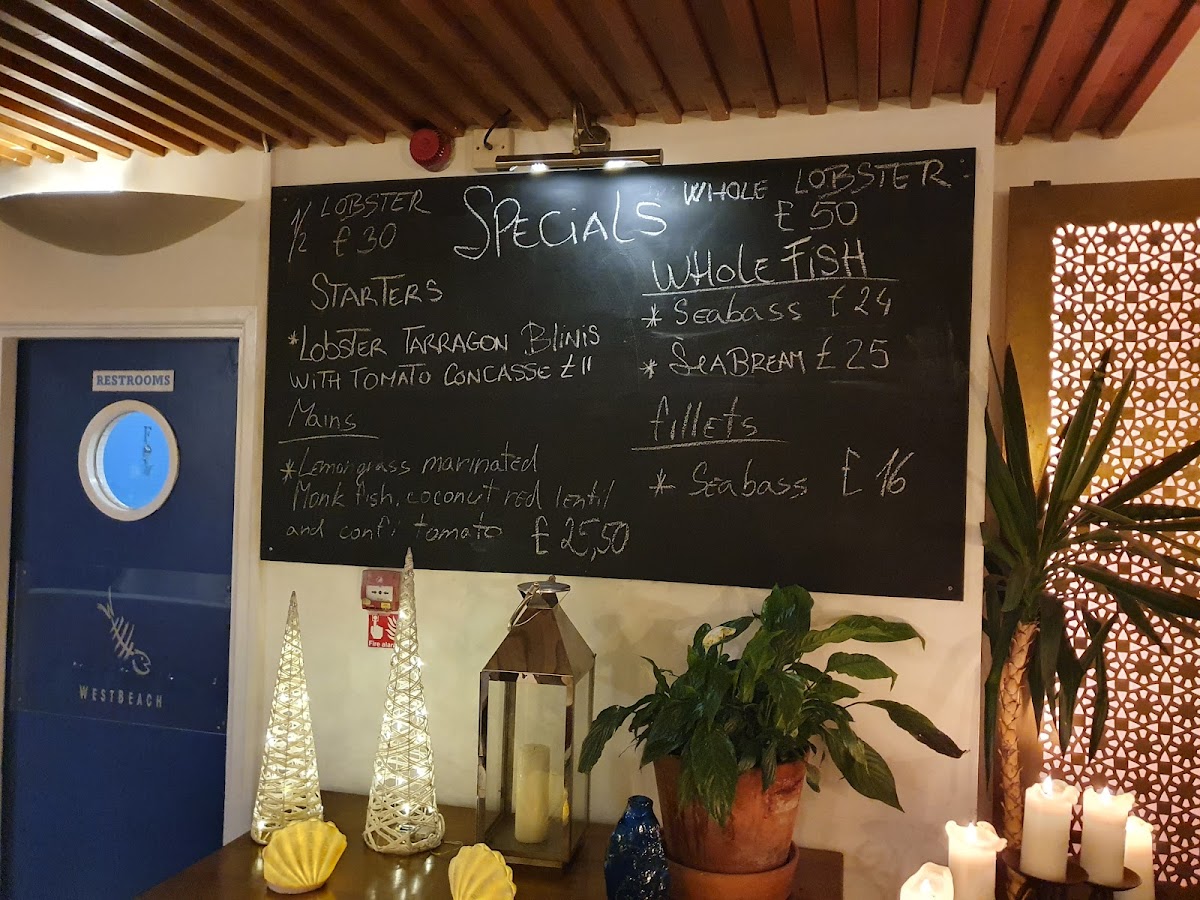 SPECIALS
1/2 LOBSTER
£30
STARTERS
*LOBSTER TARRAGON BLINIS
WITH TOMATO CONCASSE £11
Mains
*Lemongrass marinated
Monk fish, coconut red lentil
and confi tomato £25,50
WHOLE LOBSTER
£50
WHOLE FISH
* Seabass £24
* SEABREAM £25
fillets
* Seabass £16
RESTROOMS
WESTBEACH
Fire alarm